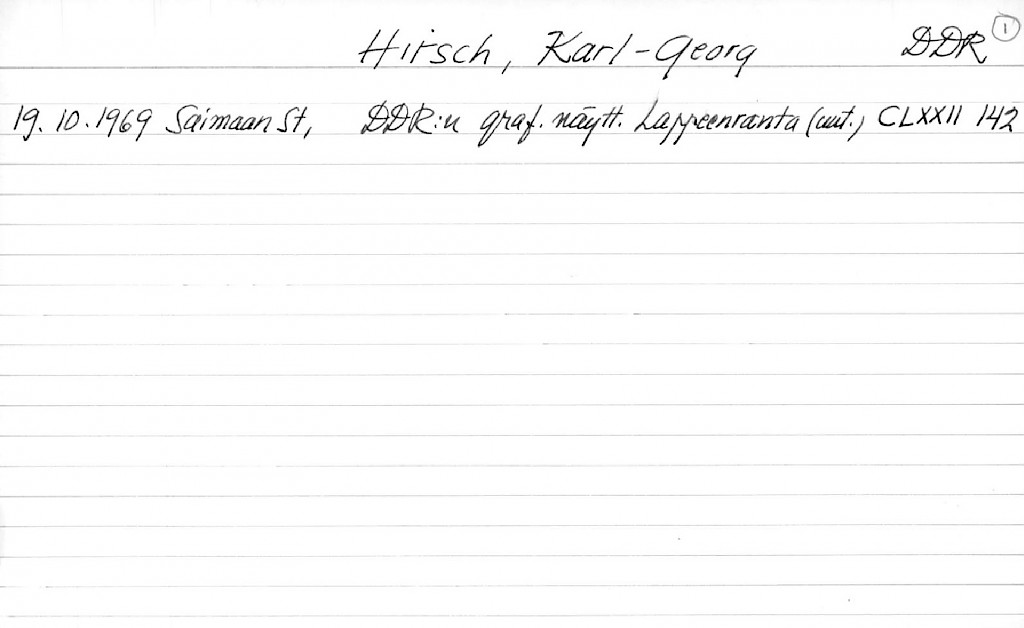 Hirsch, Karl-Georg DDR 1
19.10.1969 Saimaan St, DDR:n graf. näytt. Lappeenranta (uut.) CLXXII 142